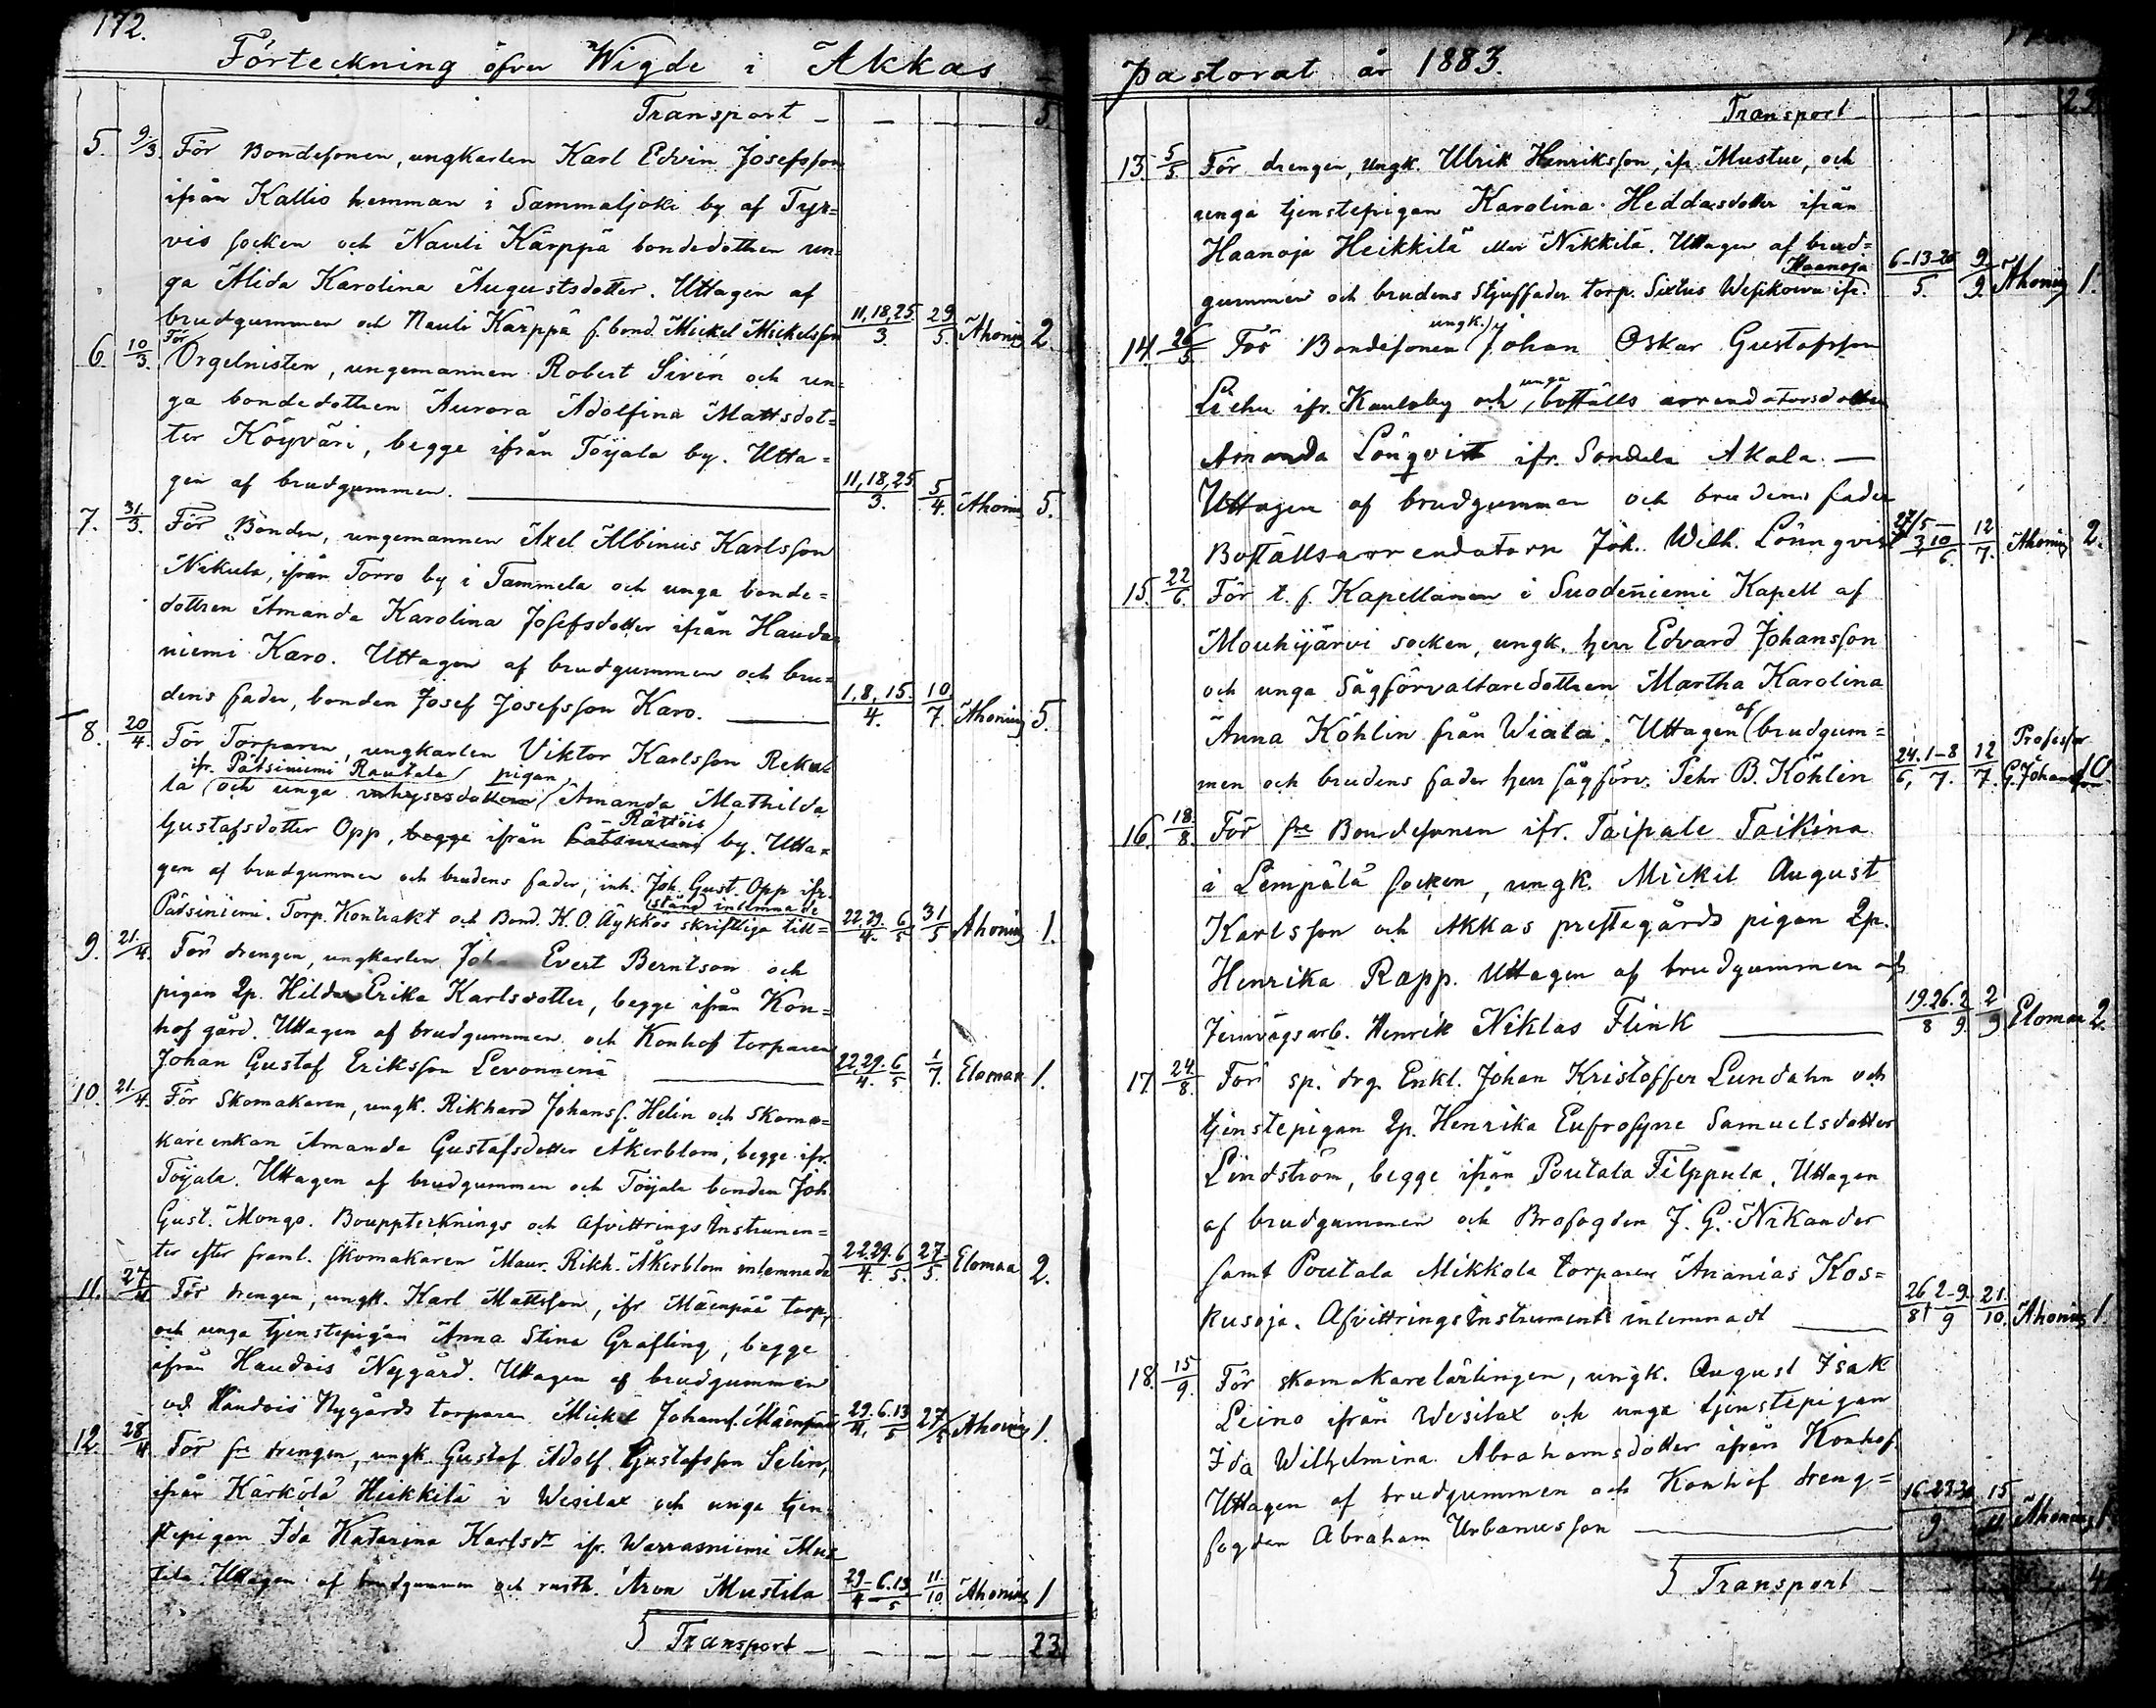 172.
Förteckning öfver Wigde i Akkas
Transport — — — — 5.
5. 9/3. För Bondesonen, ungkarlen Karl Edvin Josefsson
ifrån Kallio hemman i Sammaljoki by af Tyr=
vis socken och Nauli Kärppä bondedottren un=
ga Alida Karolina Augustsdotter. Uttagen af
brudgummen och Nauli Kärppä f. bond. Mickel Mickelsson 11,18,25./3. 29/5. Ahonius 2.
6. 10/3. För Orgelnisten, ungemannen Robert Sivén och un=
ga bondedottren Aurora Adolfina Mattsdot=
ter Köyväri, begge ifrån Toijala by. Utta=
gen af brudgummen. 11,18,25./3. 5/4. Ahonius 5.
7. 31/3. För Bonden, ungemannen Axel Albinus Karlsson
Nikula, ifrån Torro by i Tammela och unga bonde=
dottren Amanda Karolina Josefsdotter ifrån Hauda
niemi Karo. Uttagen af brudgummen och bru=
dens fader, bonden Josef Josefsson Karo. 1,8,15./4. 10/7. Ahonius 5.
8. 20/4. För Torparen, ungkarlen Viktor Karlsson Rekul
ifr. Pätsiniemi Rautala pigan
la och unga inhysesdottern Amanda Mathilda
Rättöis
Gustafsdotter Opp, begge ifrån Pätsiniemi by. Utta=
gen af brudgummen och brudens fader, inh. Joh. Gust. Opp ifr.
stånd inlemnade
Pätsiniemi. Torp. Kontrakt och Bond. K. O. Äykkös skriftliga till= 22.29./4. 6/5 31/5 Ahonius 1.
9. 21./4. För drengen, ungkarlen Joha Evert Berntson och
pigan 2p. Hilda Erika Karlsdotter, begge ifrån Kon=
hof gård. Uttagen af brudgummen och Konhof torparen
Johan Gustaf Eriksson Levonninä 22.29./4. 6/5 1/7. Elomaa 1.
10. 21/4. För Skomakaren, ungk. Rikhard Johanss. Helin och skoma=
kare enkan Amanda Gustafsdotter Åkerblom, begge ifr.
Toijala. Uttagen af brudgummen och Toijala bonden Joh.
Gust. Mongo. Bouppteknings och Afvittrings Instrumen=
ter efter framl. skomakaren Maur. Rikh. Åkerblom inlemnade 22.29./4. 6/5. 27/5. Elomaa 2.
11. 27/4 För drengen, ungk. Karl Mattsson, ifr Mäenpää torp,
och unga tjenstepigan Anna Stina Grafling, begge
ifrån Haudois Nygård. Uttagen af brudgummen
och Haudois Nygårds torparen Mickel Johanss. Mäenpää 29./4. 6.13/5 27/5 Ahonius 1.
12. 28/4 För fre drengen, ungk. Gustaf Adolf Gustafsson Selin,
ifrån Kärkölä Heikkilä i Wesilax och unga tjen=
stepigan Ida Katarina Karlsdr ifr. Warrasniemi Mus
tila. Uttagen af brudgummen och rusth. Aron Mustila 29/4 – 6.13/5 11./10. Ahonius 1
Transport — — — — 23.
pastorat år 1883.
Transport — — — — 23.
13. 5/5. För drengen, ungk. Ulrik Henriksson, ifr. Mustue, och
unga tjenstepigan Karolina Heddasdotter ifrån
Haanoja Heikkilä eller Nikkilä. Uttagen af brud=
Haanoja
gummen och brudens Stjuffader torp. Sixtus Wesikowa ifr. 6–13–20/5. 9./9. Ahonius 1.
14. 26/5 För Bondesonen ungk. Johan Oskar Gustafsson
unga
Liehu ifr. Kaulaby och boställs arrendatorsdottren
Amanda Lönqvist ifr. Sondela Akala. —
Uttagen af brudgummen och brudens fader
Boställsarrendatorn Joh. Wilh. Lönnqvist 27/5 – 3,10/6. 12/7. Ahonius 2.
15. 22/6. För t. f. Kapellanen i Suodeniemi Kapell af
Mouhijärvi socken, ungk. herr Edvard Johansson
och unga Sågförvaltaredottren Martha Karolina
Anna Köhlin från Wiala. Uttagen af brudgum=
men och brudens fader herr sågförv. Pehr B. Köhlin 24./6, 1–8/7. 12/7. Professor G. Johansson 10
16. 18./8. För fre Bondesonen ifr. Taipale Taikina
i Lempälä socken, ungk. Mickel August
Karlsson och Akkas prestegårds pigan 2p.
Henrika Rapp. Uttagen af brudgummen och
Jernvägsarb. Henrik Niklas Flink 19.26./8 2/9. 2/9 Elomaa 2.
17. 24./8. För sp. drg. Enkl. Johan Kristoffer Lundahn och
tjenstepigan 2p. Henrika Eufrosyne Samuelsdotter
Lindström, begge ifrån Poutala Filppula. Uttagen
af brudgummen och Brofogden J. G. Nikander
samt Poutala Mikkola torparen Ananias Kos=
kusoja. Afvittrings Instrument inlemnadt 26/8 2–9./9 21./10. Ahonius 1.
18. 15/9. För skomakarelärlingen, ungk. August Isak
Leino ifrån Wesilax och unga tjenstepigan
Ida Wilhelmina Abrahamsdotter ifrån Konhof.
Uttagen af brudgummen och Konhof dreng=
fogden Abraham Urbanusson 16–23.30/9. 15/11 Ahonius 1
Transport — 4